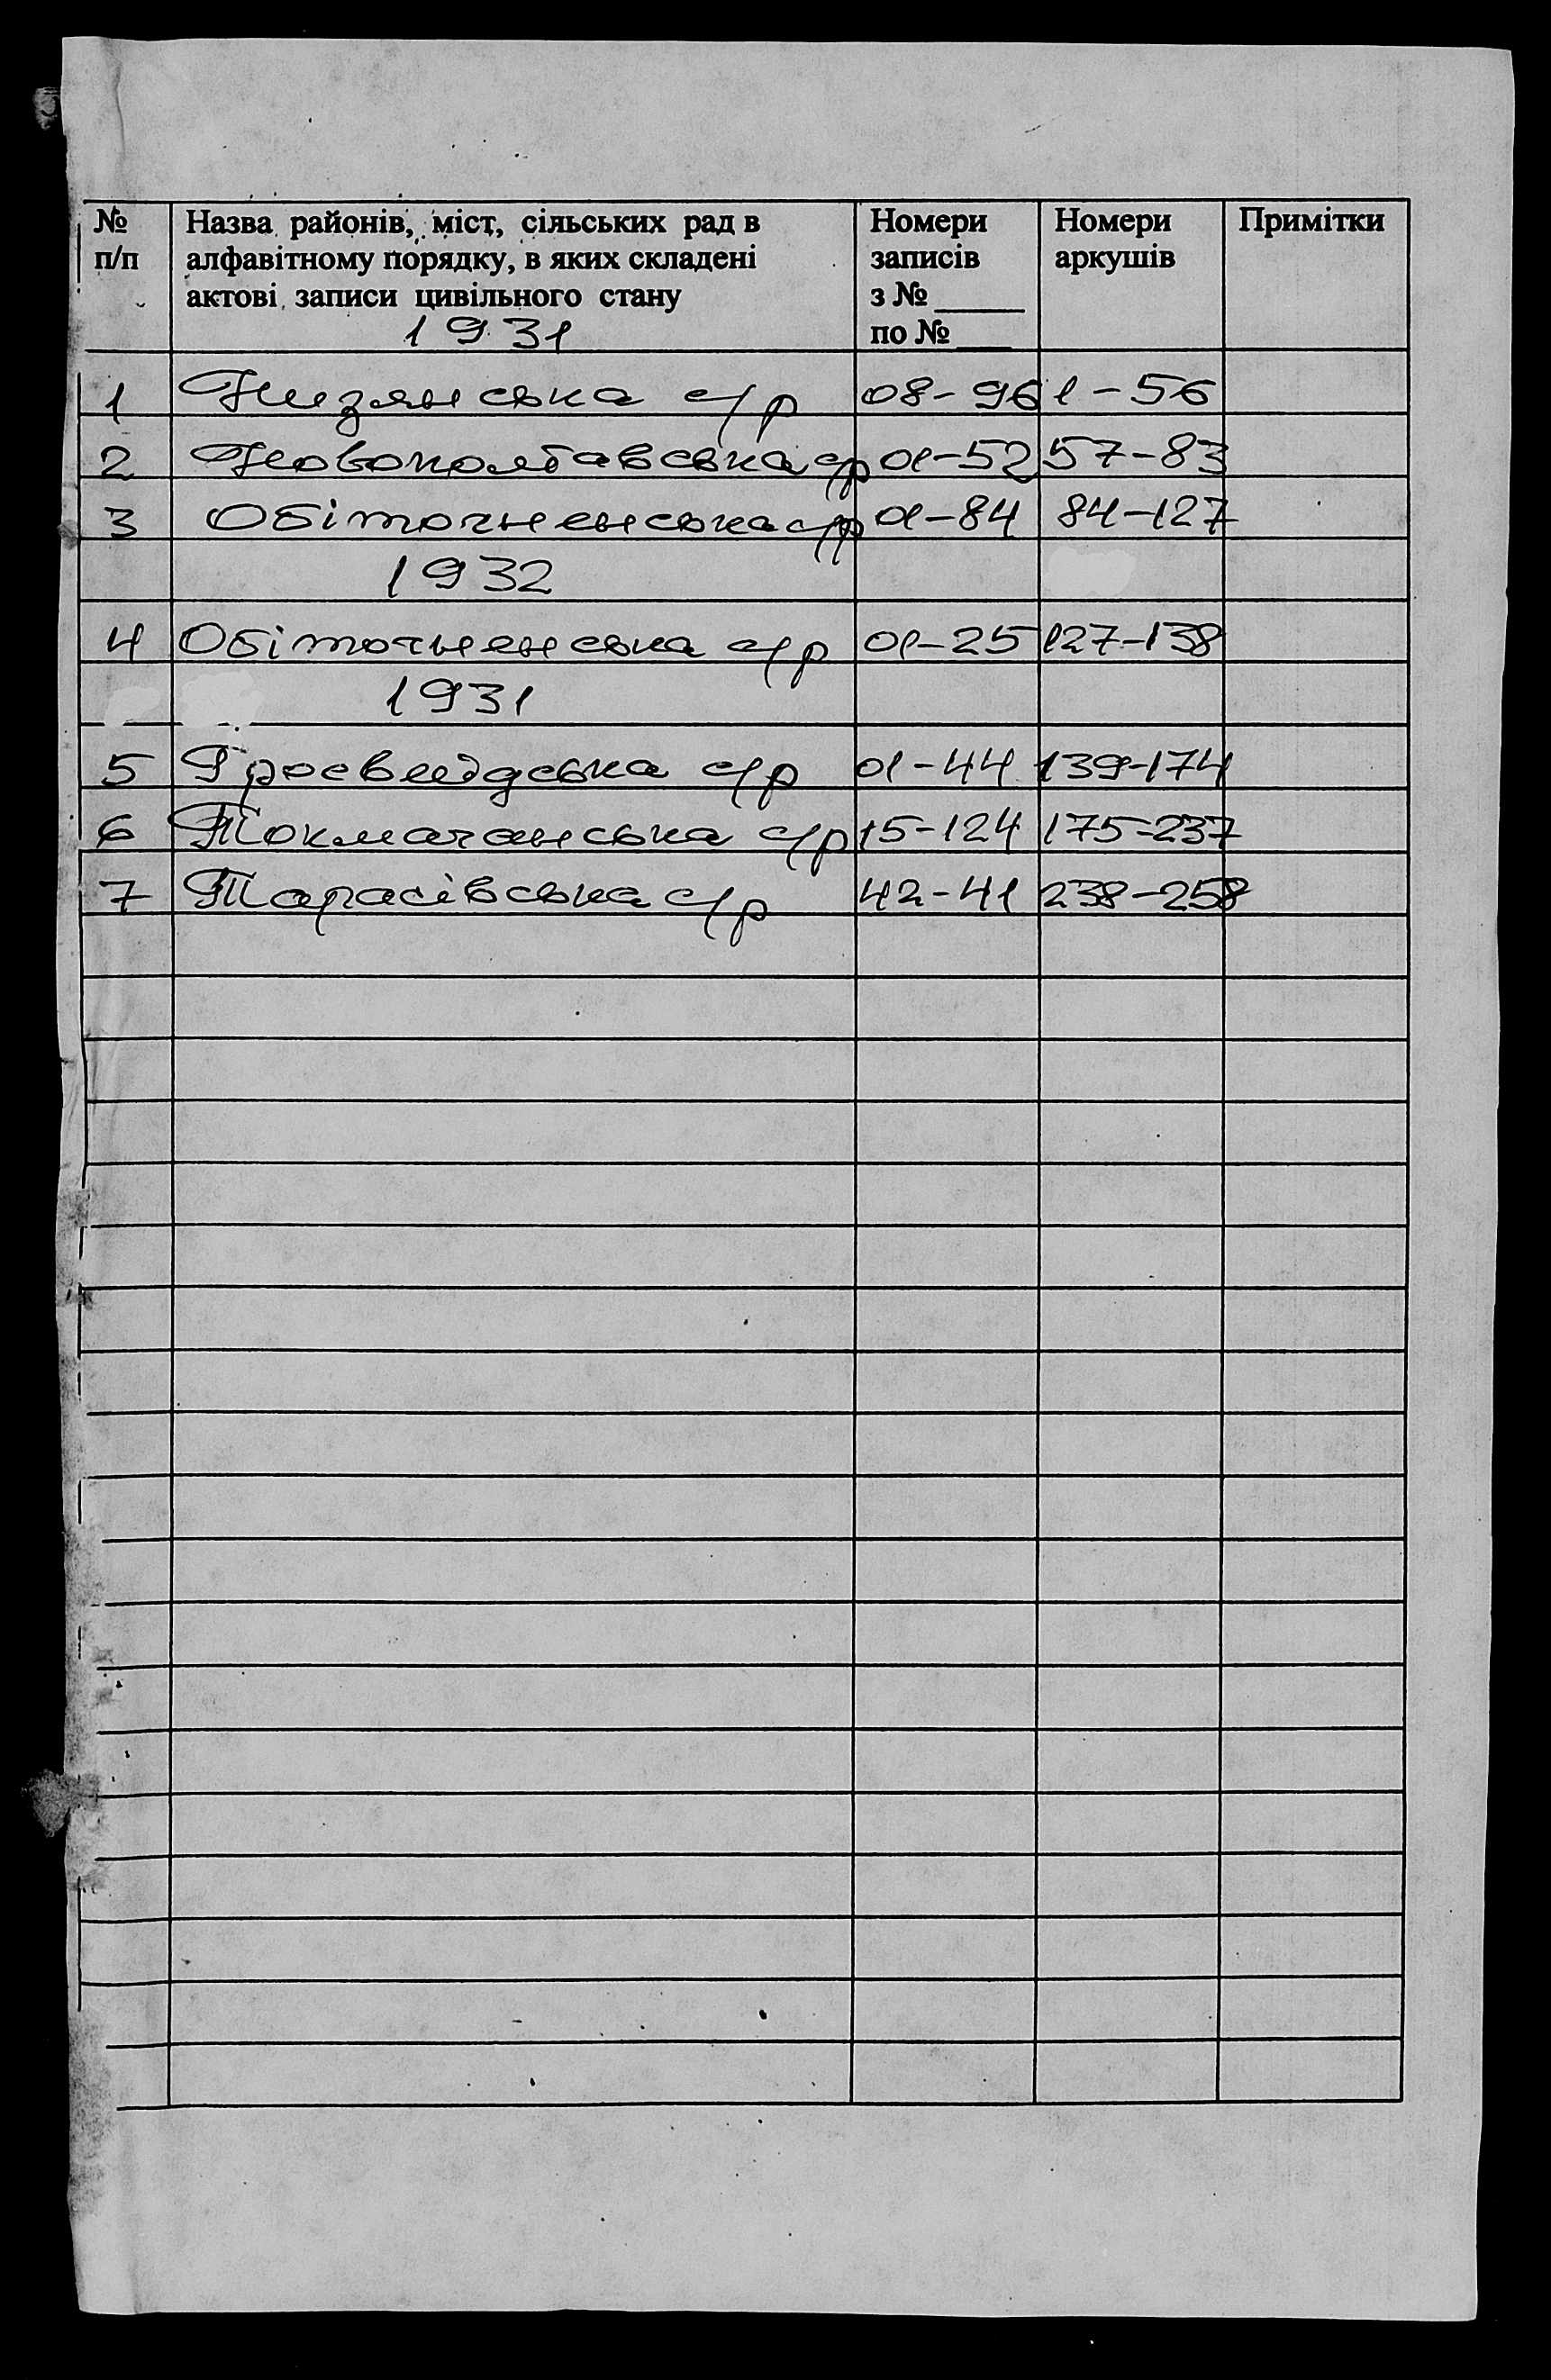 № Назва районів, міст, сільських рад в Номери Номери Примітки
п/п алфавітному порядку, в яких складені записів аркушів
актові записи цивільного стану з № ____
1931 по № ____
1 Низянська с/р 08-96 1-56
2 Новополтавська с/р 01-52 57-83
3 Обіточненська с/р 01-84 84-127
1932
4 Обіточненська с/р 01-25 127-138
1931
5 с/р 01-44 139-174
6 Токмачанська с/р 15-124 175-237
7 Тарасівська с/р 42-41 238-258